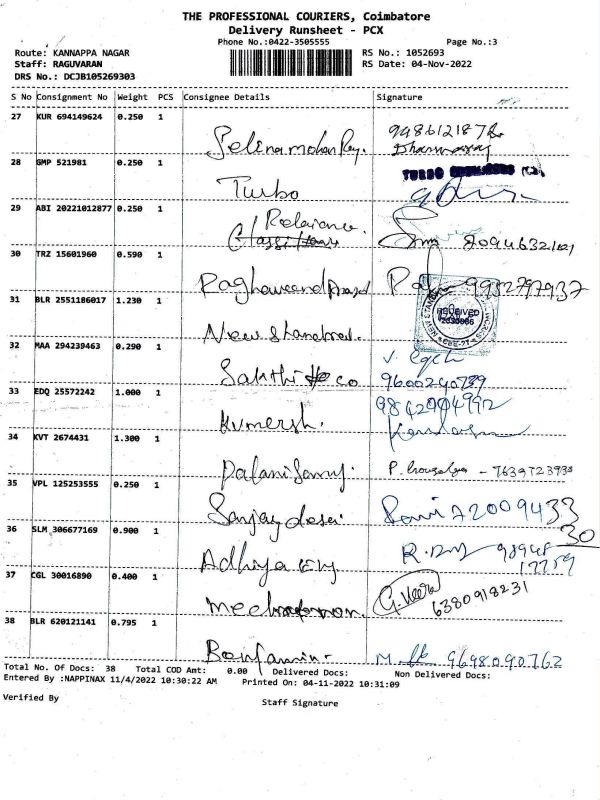 THE PROFESSIONAL COURIERS, Coimbatore
Delivery Runsheet - PCX
Phone No.:0422-3505555 Page No.:3
Route: KANNAPPA NAGAR RS No.: 1052693
Staff: RAGUVARAN RS Date: 04-Nov-2022
DRS No.: DCJB105269303
S No Consignment No Weight PCS Consignee Details Signature
27 KUR 694149624 0.250 1
Selina mohan Raj.
28 GMP 521981 0.250 1
Turbo
29 ABI 20221012877 0.250 1
Relaiance
30 TRZ 15601960 0.590 1
9952797937
31 BLR 2551186017 1.230 1
RECEIVED
New Standard.
32 MAA 294239463 0.290 1
Sakthi co 9600240789
33 EDQ 25572242 1.000 1
Kumersh.
34 KVT 2674431 1.300 1
Palanisamy.
35 VPL 125253555 0.250 1
Sanjay desai
36 SLM 306677169 0.900 1
Adhiya
37 CGL 30016890 0.400 1
G. Veera
6380918231
38 BLR 620121141 0.795 1
Benjamin 9698090762
Total No. Of Docs: 38 Total COD Amt: 0.00 Delivered Docs: Non Delivered Docs:
Entered By :NAPPINAX 11/4/2022 10:30:22 AM Printed On: 04-11-2022 10:31:09
Verified By Staff Signature